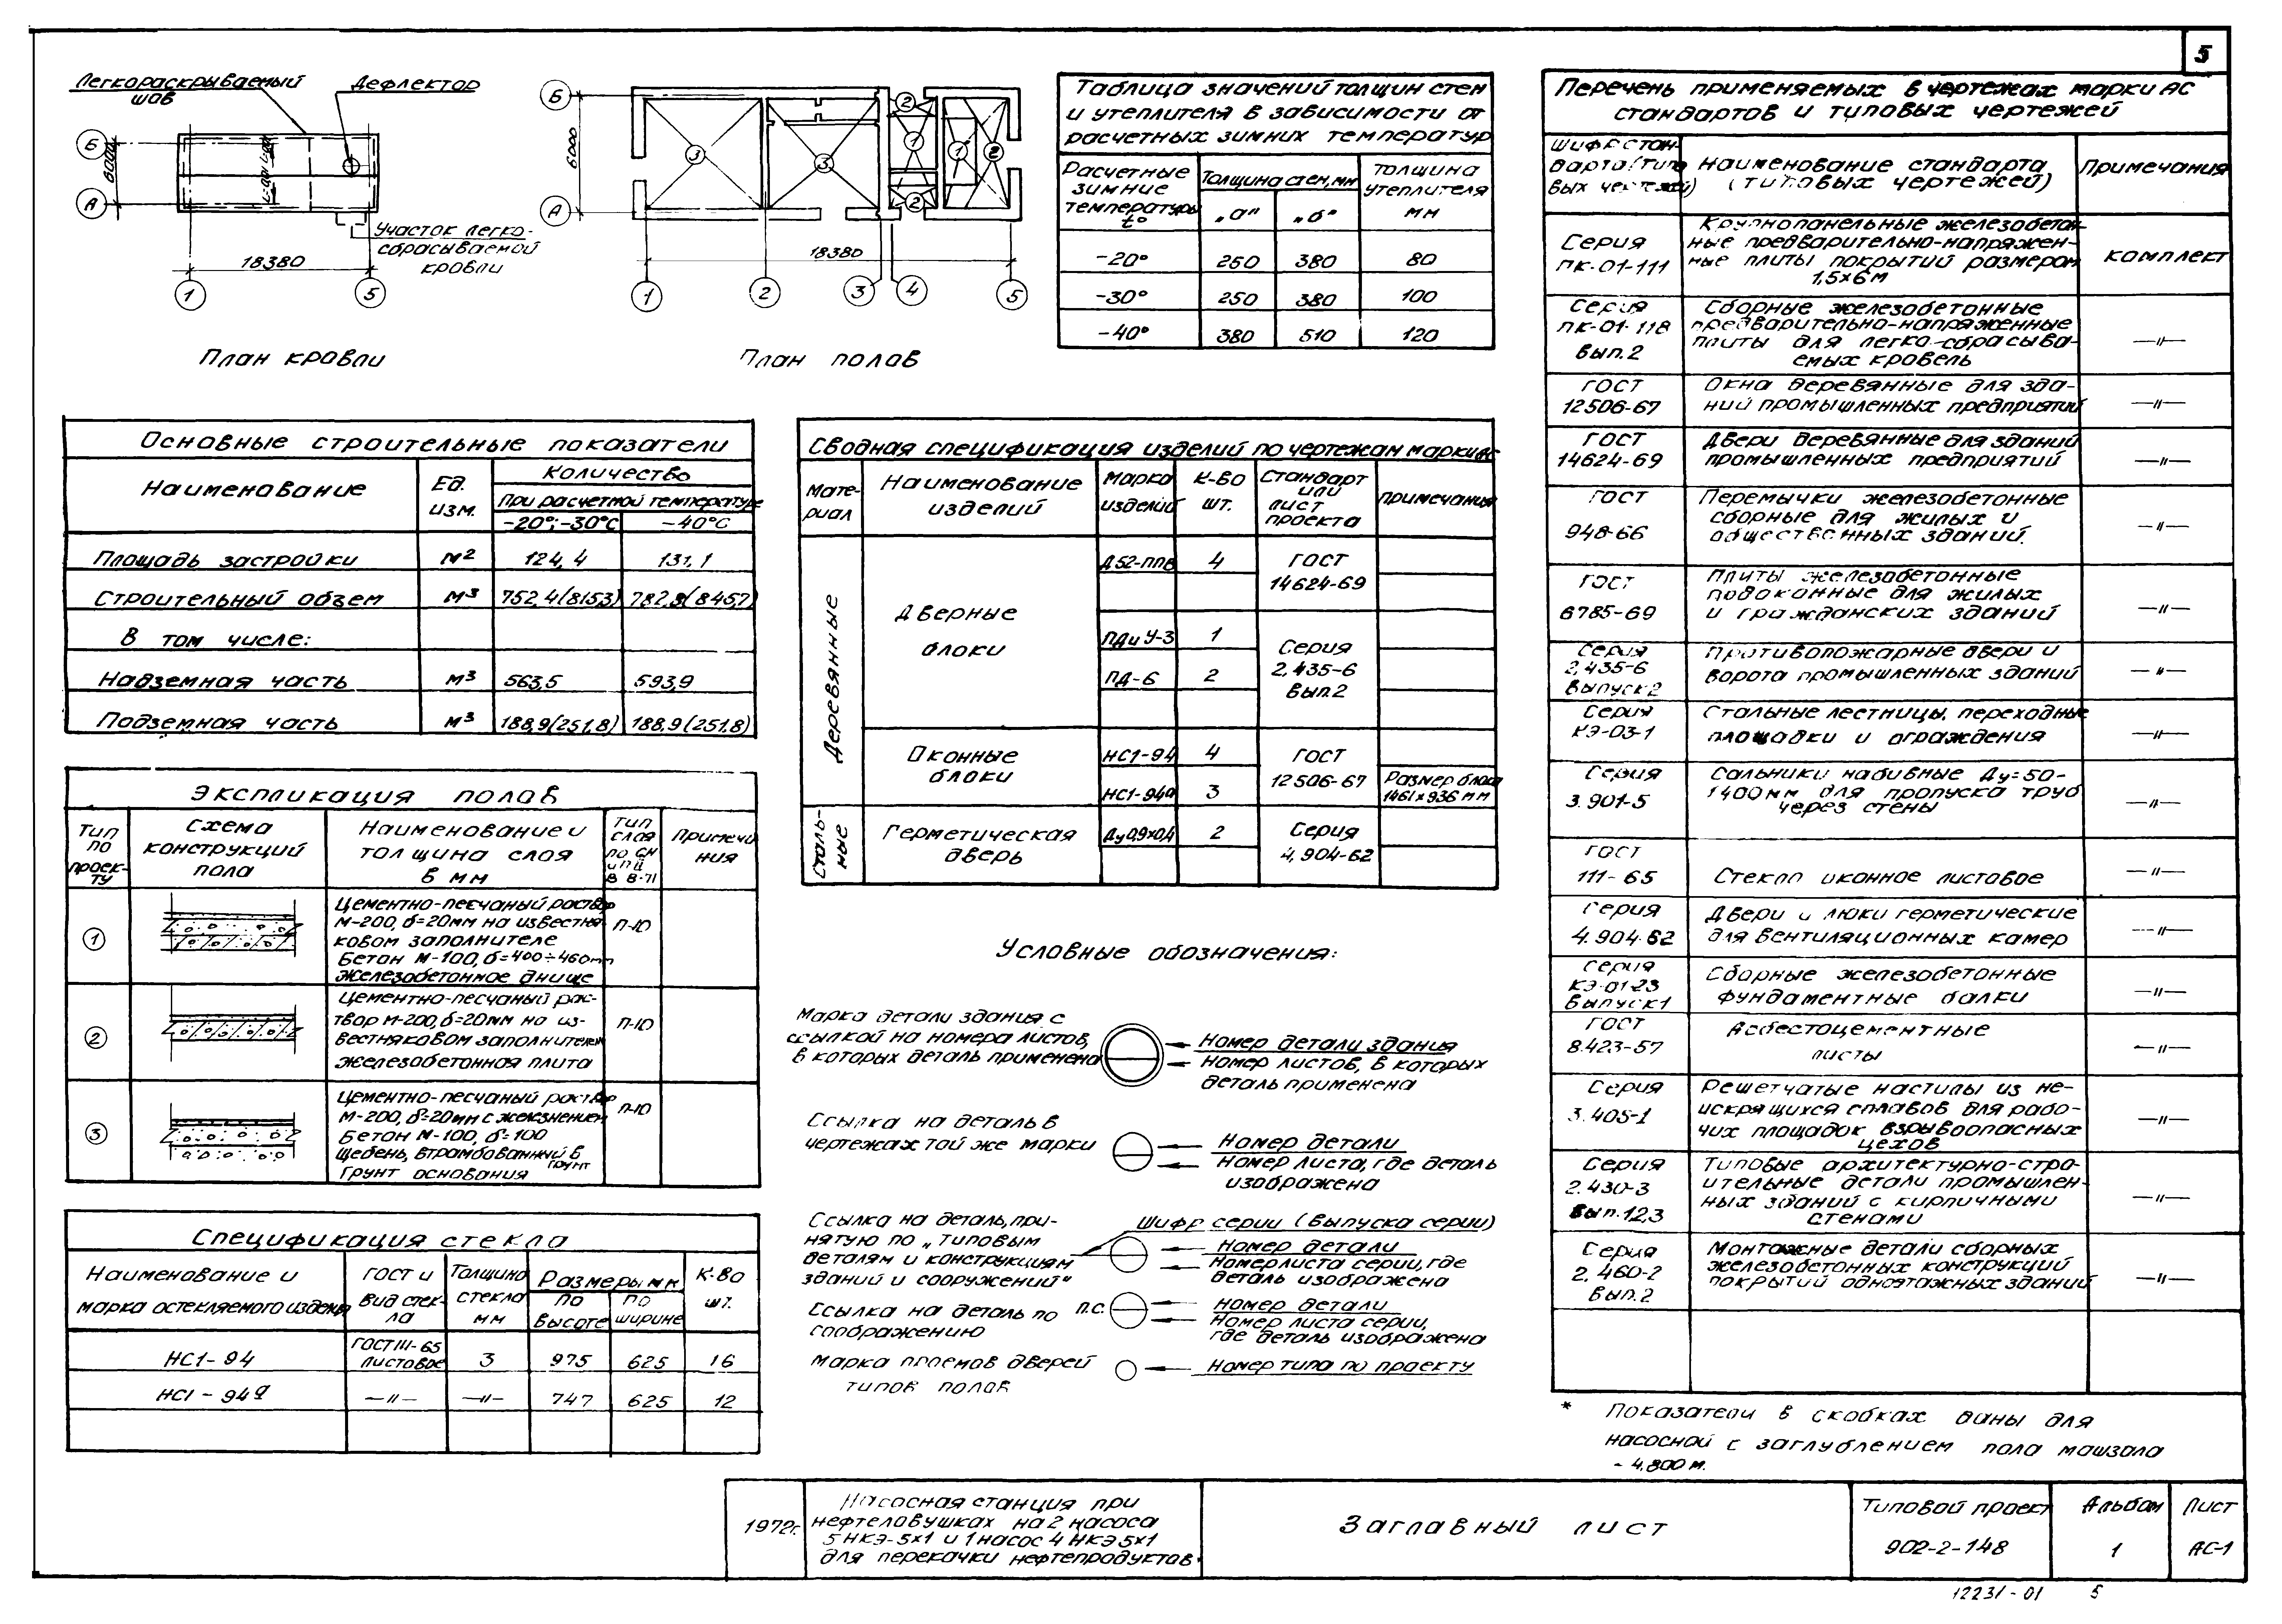 5
Легкораскрываемый
шов
Дефлектор
Б
6000
А
Участок легко-
сбрасываемой
кровли
18380
1
5
План кровли
Б
6000
А
3
3
2
1
2
1
2
18380
1
2
3
4
5
План полов
Таблица значений толщин стен
и утеплителя в зависимости от
расчетных зимних температур
Расчетные
зимние
температуры
t°
Толщина стен, мм
„а"
„б"
Толщина
утеплителя
мм
-20° 250 380 80
-30° 250 380 100
-40° 380 510 120
Перечень применяемых в чертежах марки АС
стандартов и типовых чертежей
Шифр стан-
дарта (типо
вых чертежей)
Наименование стандарта
(типовых чертежей)
Примечания
Серия
ПК-01-111
Крупнопанельные железобетон-
ные предварительно-напряжен-
ные плиты покрытий размером
1,5×6м
комплект
Серия
ПК-01-118
Вып.2
Сборные железобетонные
предварительно-напряженные
плиты для легко-сбрасыва-
емых кровель
—"—
ГОСТ
12506-67
Окна деревянные для зда-
ний промышленных предприятий
—"—
ГОСТ
14624-69
Двери деревянные для зданий
промышленных предприятий
—"—
ГОСТ
948-66
Перемычки железобетонные
сборные для жилых и
общественных зданий.
—"—
ГОСТ
6785-69
Плиты железобетонные
подоконные для жилых
и гражданских зданий
—"—
Серия
2,435-6
Выпуск 2
Противопожарные двери и
ворота промышленных зданий
—"—
Серия
КЭ-03-1
Стальные лестницы, переходные
площадки и ограждения
—"—
Серия
3.901-5
Сальники набивные Ду=50-
1400мм для пропуска труб
через стены
—"—
ГОСТ
111-65
Стекло оконное листовое
—"—
Серия
4.904-62
Двери и люки герметические
для вентиляционных камер
—"—
Серия
КЭ-01-23
Выпуск 1
Сборные железобетонные
фундаментные балки
—"—
ГОСТ
8.423-57
Асбестоцементные
листы
—"—
Серия
3.405-1
Решетчатые настилы из не-
искрящихся сплавов для рабо-
чих площадок взрывоопасных
цехов
—"—
Серия
2.430-3
Вып.12,3
Типовые архитектурно-стро-
ительные детали промышлен-
ных зданий с кирпичными
стенами
—"—
Серия
2.460-2
Вып.2
Монтажные детали сборных
железобетонных конструкций
покрытий одноэтажных зданий
—"—
* Показатели в скобках даны для
насосной с заглублением пола машзала
- 4,800 м.
Основные строительные показатели
Наименование
Ед.
изм.
Количество
при расчетной температуре
-20°; -30°С
-40°С
Площадь застройки м2 124,4 131,1
Строительный объем м3 752,4(815,3) 782,8(845,7)
В том числе:
Надземная часть м3 563,5 593,9
Подземная часть м3 188,9(251,8) 188,9(251,8)
Сводная спецификация изделий по чертежам марки АС
Мате-
риал
Наименование
изделий
Марка
изделий
К-во
шт.
Стандарт
или
лист
проекта
примечания
Деревянные
Дверные
блоки
Д52-ппв 4
ГОСТ
14624-69
ПДиУ-3 1
ПД-6 2
Серия
2,435-6
Вып.2
Оконные
блоки
НС1-94 4
НС1-94а 3
ГОСТ
12506-67
Размер блока
1461×936 мм
Сталь-
ные
Герметическая
дверь
Ду0,9×0,4 2
Серия
4,904-62
Экспликация полов
Тип
по
проек-
ту
Схема
конструкций
пола
Наименование и
толщина слоя
в мм
Тип
слоя
по СН
и П II
В 8-71
Примеча
ния
1
Цементно-песчаный раствор
М-200, δ=20мм на известня-
ковом заполнителе
Бетон М-100, δ=400÷460мм
Железобетонное днище
П-10
2
Цементно-песчаный рас-
твор М-200, δ=20мм на из-
вестняковом заполнителе
железобетонная плита
П-10
3
Цементно-песчаный раствор
М-200, δ=20мм с железнением
Бетон М-100, δ=100
Щебень, втрамбованный в
грунт
Грунт основания
П-10
Спецификация стекла
Наименование и
марка остекляемого изделия
ГОСТ и
вид стек-
ла
Толщина
стекла
мм
Размеры мм
по
высоте
по
ширине
К-во
шт.
НС1-94
ГОСТ 111-65
листовое
3 975 625 16
НС1-94а —"— —"— 747 625 12
Условные обозначения:
Марка детали здания с
ссылкой на номера листов,
в которых деталь применена
Номер детали здания
Номер листов, в которых
деталь применена
Ссылка на деталь в
чертежах той же марки
Номер детали
Номер листа, где деталь
изображена
Ссылка на деталь, при-
нятую по „типовым
деталям и конструкциям
зданий и сооружений"
Шифр серии (выпуска серии)
Номер детали
Номер листа серии, где
деталь изображена
Ссылка на деталь по
соображению
п.с.
Номер детали
Номер листа серии,
где деталь изображена
Марка проемов дверей
типов полов
Номер типа по проекту
1972г.
Насосная станция при
нефтеловушках на 2 насоса
5НКЭ-5×1 и 1 насос 4НКЭ 5×1
для перекачки нефтепродуктов.
Заглавный лист
Типовой проект
902-2-148
Альбом
1
Лист
АС-1
12231-01 5